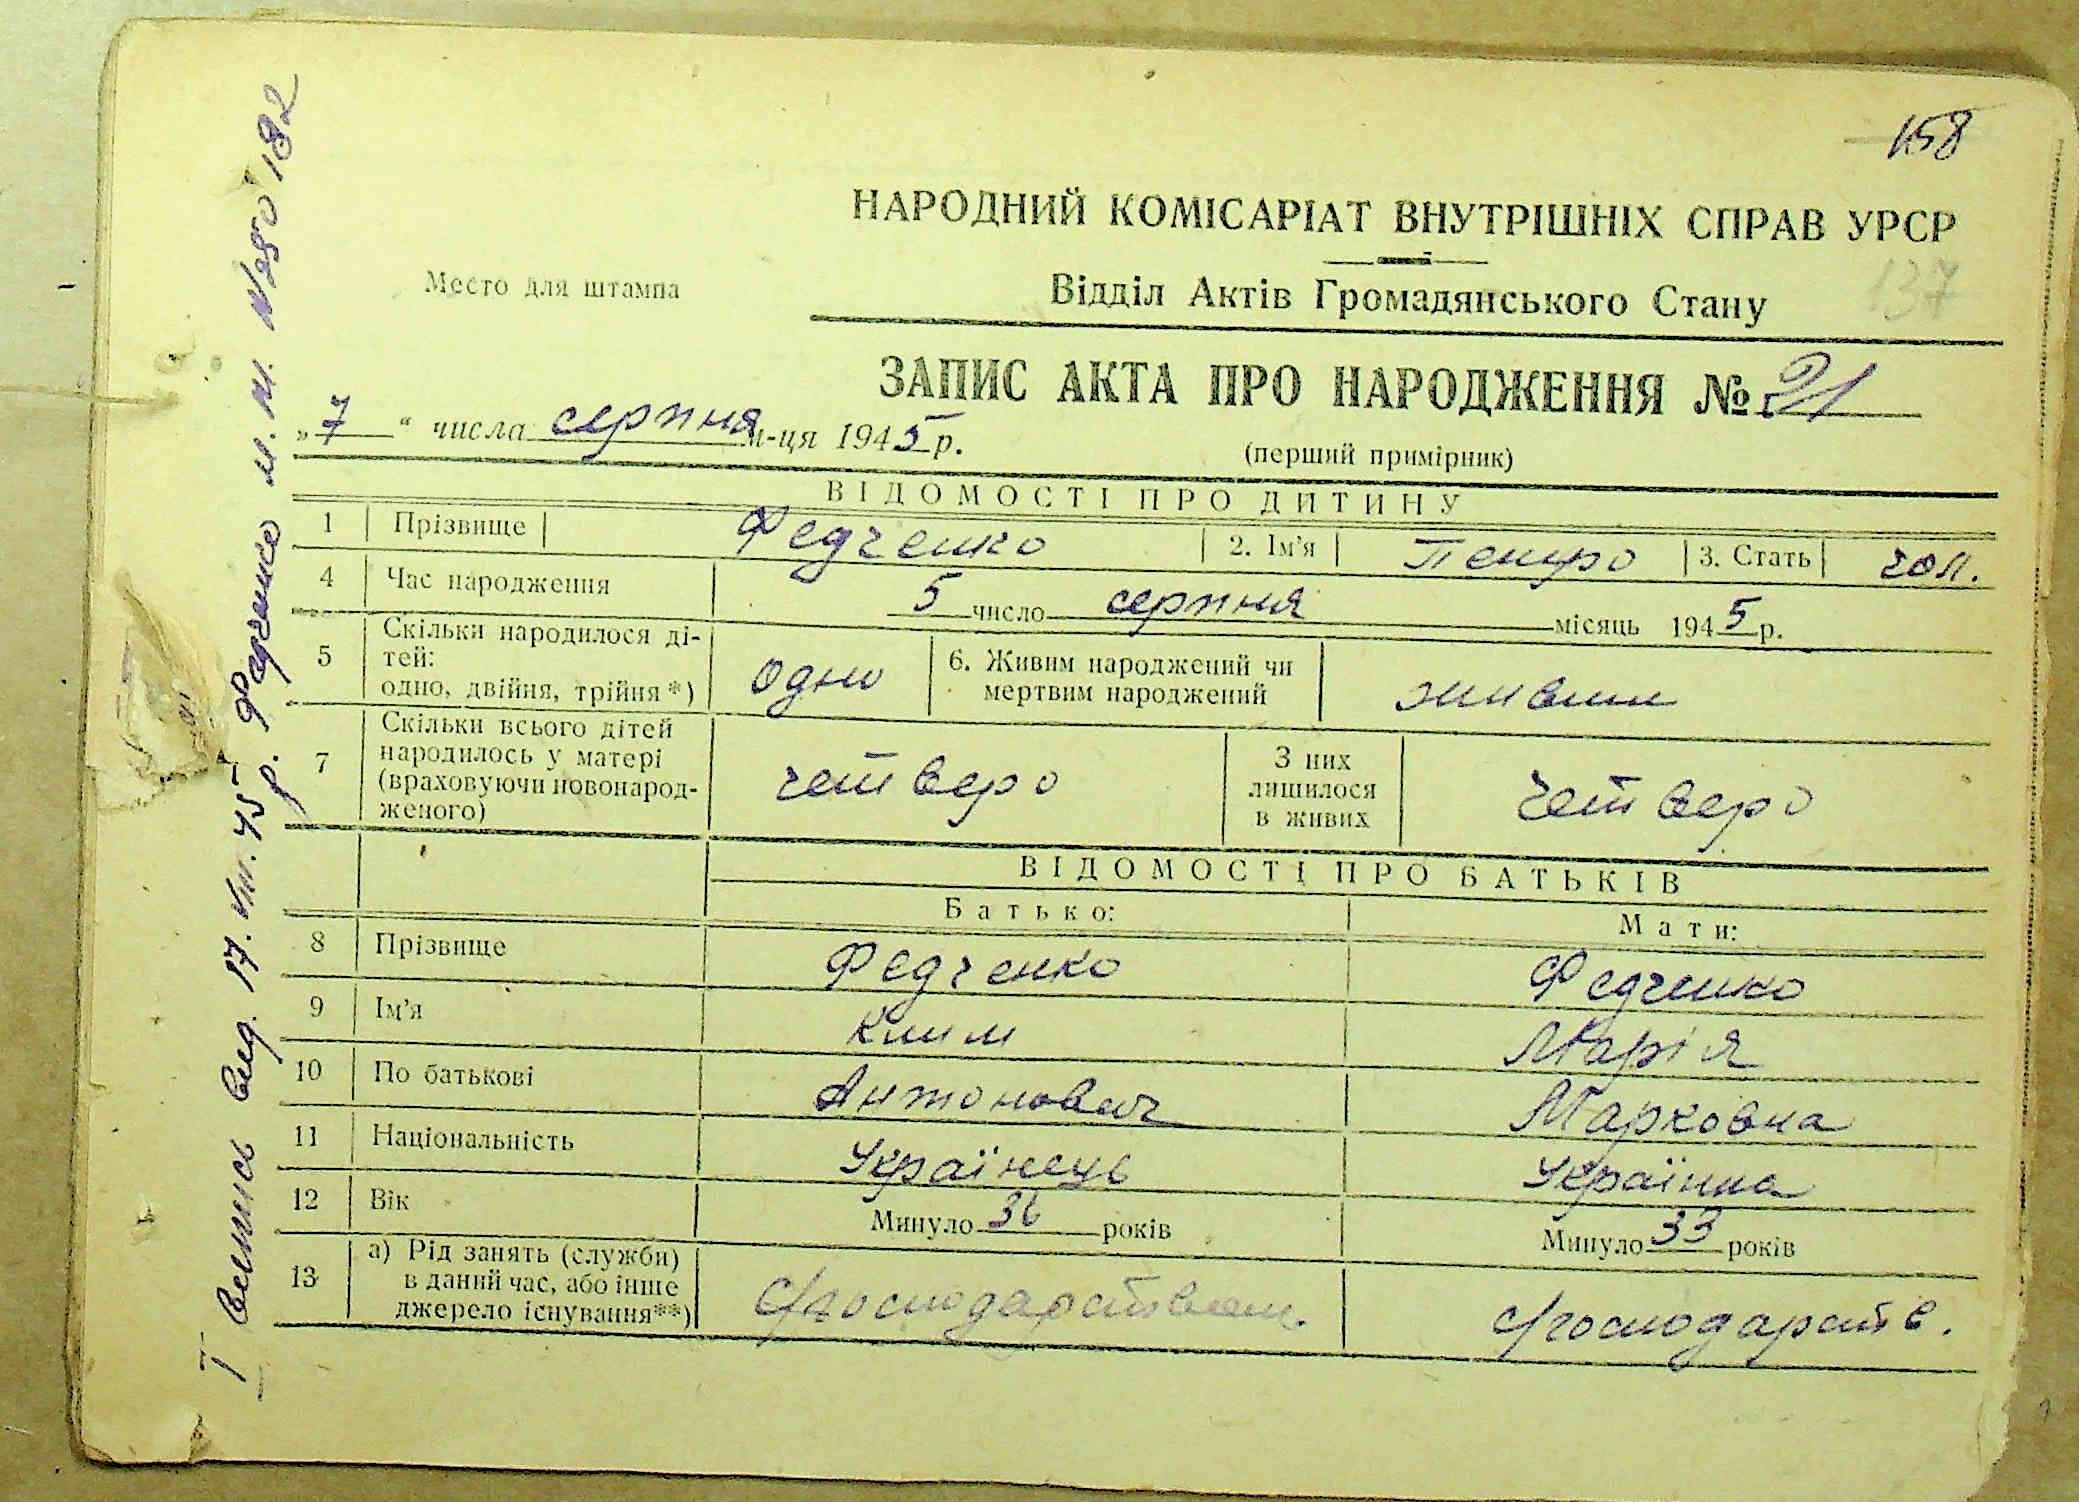 158
НАРОДНИЙ КОМІСАРІАТ ВНУТРІШНІХ СПРАВ УРСР
Место для штампа
Відділ Актів Громадянського Стану
137
ЗАПИС АКТА ПРО НАРОДЖЕННЯ № 21
„ 7 “ числа серпня м-ця 1945 р.
(перший примірник)
ВІДОМОСТІ ПРО ДИТИНУ
1 Прізвище Федченко 2. Ім’я Петро 3. Стать чол.
4 Час народження 5 число серпня місяць 1945 р.
5 Скільки народилося ді-
тей:
одно, двійня, трійня*) одно 6. Живим народжений чи
мертвим народжений живим
7 Скільки всього дітей
народилось у матері
(враховуючи новонарод-
женого) четверо З них
лишилося
в живих четверо
ВІДОМОСТІ ПРО БАТЬКІВ
Батько: Мати:
8 Прізвище Федченко Федченко
9 Ім’я Клим Марія
10 По батькові Антонович Марковна
11 Національність Українець Українка
12 Вік Минуло 36 років Минуло 33 років
13 а) Рід занять (служби)
в даний час, або інше
джерело існування**) с/господарством. с/господарств.
р. Федченко и. м. № 250182